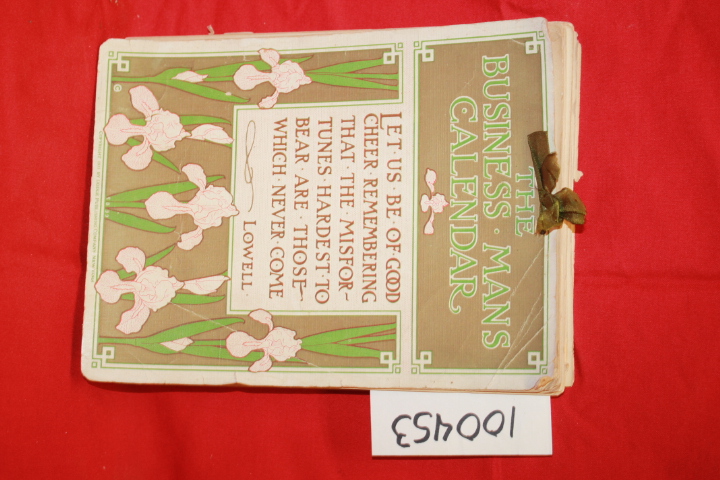 THE
BUSINESS · MANS
CALENDAR
LET · US · BE · OF · GOOD
CHEER · REMEMBERING
THAT · THE · MISFOR–
TUNES · HARDEST · TO
BEAR · ARE · THOSE
WHICH · NEVER · COME
LOWELL ·
100453